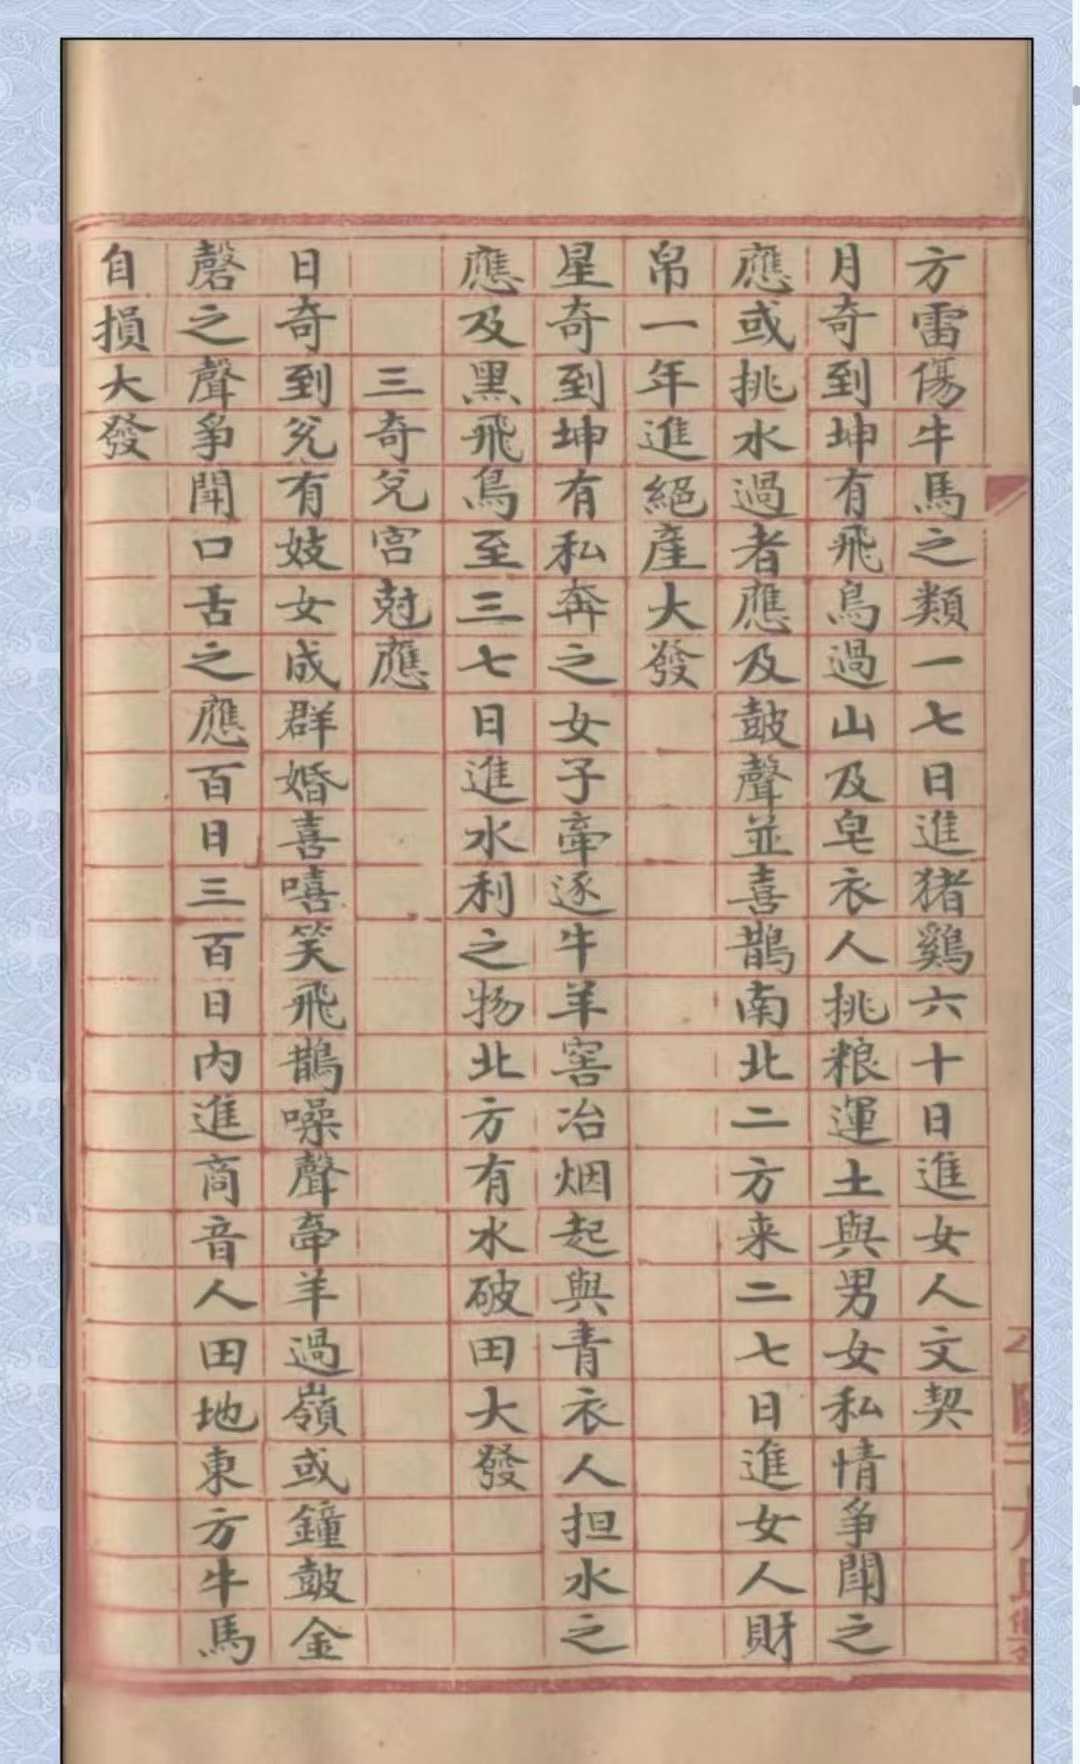 方雷傷牛馬之類一七日進猪鷄六十日進女人文契
月奇到坤有飛鳥過山及皂衣人挑粮運土與男女私情爭鬪之
應或挑水過者應及皷聲並喜鵲南北二方来二七日進女人財
帛一年進絕產大發
星奇到坤有私奔之女子牽逐牛羊窖冶烟起與青衣人担水之
應及黑飛鳥至三七日進水利之物北方有水破田大發
三奇兌宮尅應
日奇到兌有妓女成群婚喜嘻笑飛鵲噪聲牽羊過嶺或鐘皷金
磬之聲爭鬪口舌之應百日三百日内進商音人田地東方牛馬
自損大發